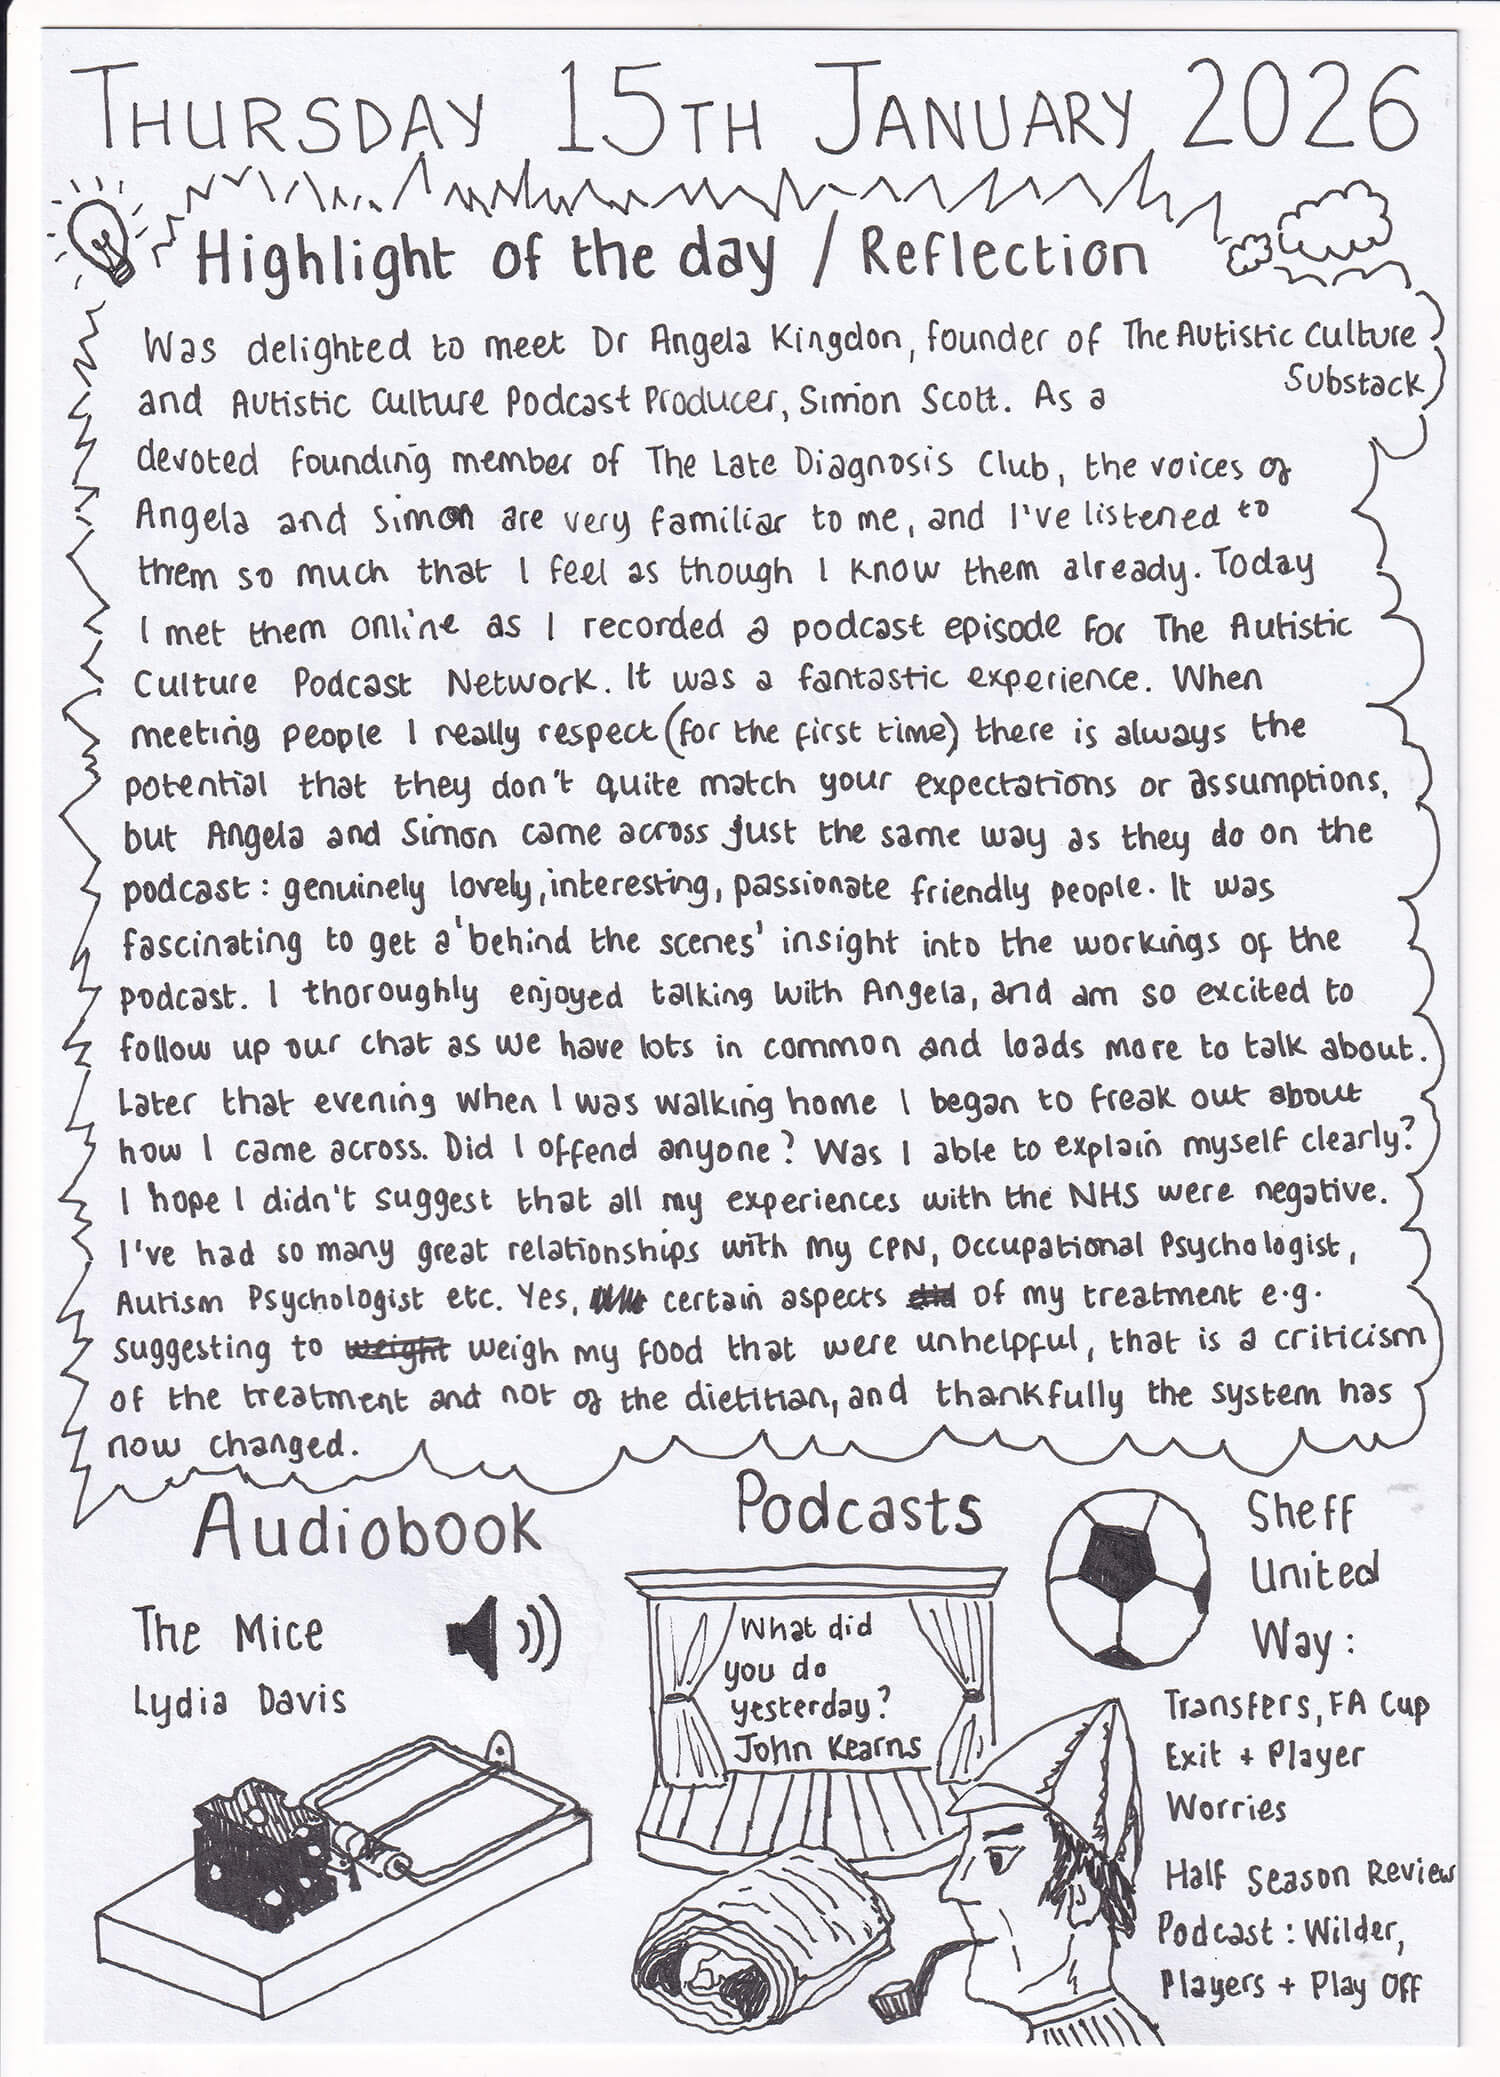 THURSDAY 15TH JANUARY 2026
Highlight of the day / Reflection
Was delighted to meet Dr Angela Kingdon, founder of The Autistic Culture
Substack
and Autistic Culture Podcast Producer, Simon Scott. As a
devoted founding member of The Late Diagnosis Club, the voices of
Angela and Simon are very familiar to me, and I've listened to
them so much that I feel as though I know them already. Today
I met them online as I recorded a podcast episode for The Autistic
Culture Podcast Network. It was a fantastic experience. When
meeting people I really respect (for the first time) there is always the
potential that they don't quite match your expectations or assumptions,
but Angela and Simon came across just the same way as they do on the
podcast: genuinely lovely, interesting, passionate friendly people. It was
fascinating to get a 'behind the scenes' insight into the workings of the
podcast. I thoroughly enjoyed talking with Angela, and am so excited to
follow up our chat as we have lots in common and loads more to talk about.
Later that evening when I was walking home I began to freak out about
how I came across. Did I offend anyone? Was I able to explain myself clearly?
I hope I didn't suggest that all my experiences with the NHS were negative.
I've had so many great relationships with my CPN, Occupational Psychologist,
Autism Psychologist etc. Yes, certain aspects of my treatment e.g.
suggesting to weight weigh my food that were unhelpful, that is a criticism
of the treatment and not of the dietitian, and thankfully the system has
now changed.
Audiobook
The Mice
Lydia Davis
Podcasts
What did
you do
yesterday?
John Kearns
Sheff
United
Way:
Transfers, FA Cup
Exit + Player
Worries
Half Season Review
Podcast: Wilder,
Players + Play Off